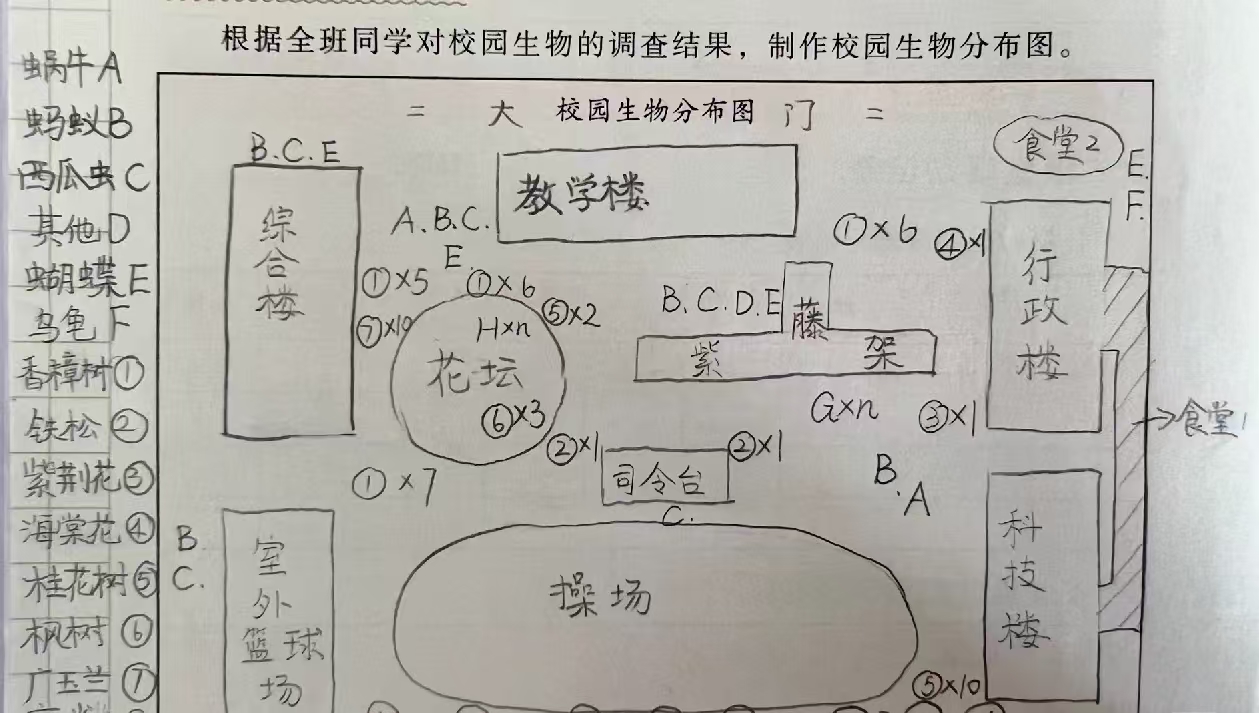 根据全班同学对校园生物的调查结果，制作校园生物分布图。
蜗牛A
蚂蚁B
西瓜虫C
其他D
蝴蝶E
乌龟F
香樟树①
铁松②
紫荆花③
海棠花④
桂花树⑤
枫树⑥
广玉兰⑦
= 大 校园生物分布图 门 =
食堂2
E.
F.
B.C.E
综合楼
教学楼
A.B.C.
E.
①×6
④×1
行政楼
①×5
①×6
⑤×2
⑦×10
H×n
花坛
⑥×3
B.C.D.E
紫藤架
G×n
③×1
→食堂1
②×1
②×1
司令台
C.
①×7
B.
A
B.
C.
室外篮球场
操场
科技楼
⑤×10